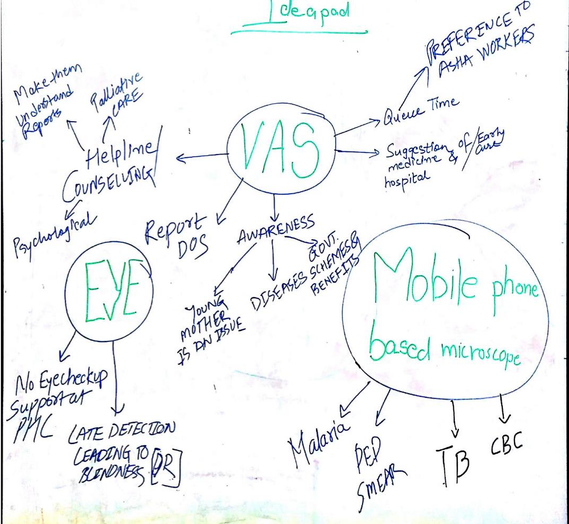 Ideapad
PREFERENCE TO
ASHA WORKERS
Make them
understand
Reports
Palliative
CARE
Queue Time
VAS
Helpline/
COUNSELLING/
Suggestion of /Early
medicine & cure
hospital
Psychological
Report
DOS
AWARENESS
YOUNG
MOTHER
IS AN ISSUE
DISEASES
GOVT.
SCHEMES &
BENEFITS
EYE
Mobile phone
based microscope
No Eyecheckup
Support at
PHC
LATE DETECTION
LEADING TO
BLINDNESS [DR]
Malaria
PED
SMEAR
TB
CBC